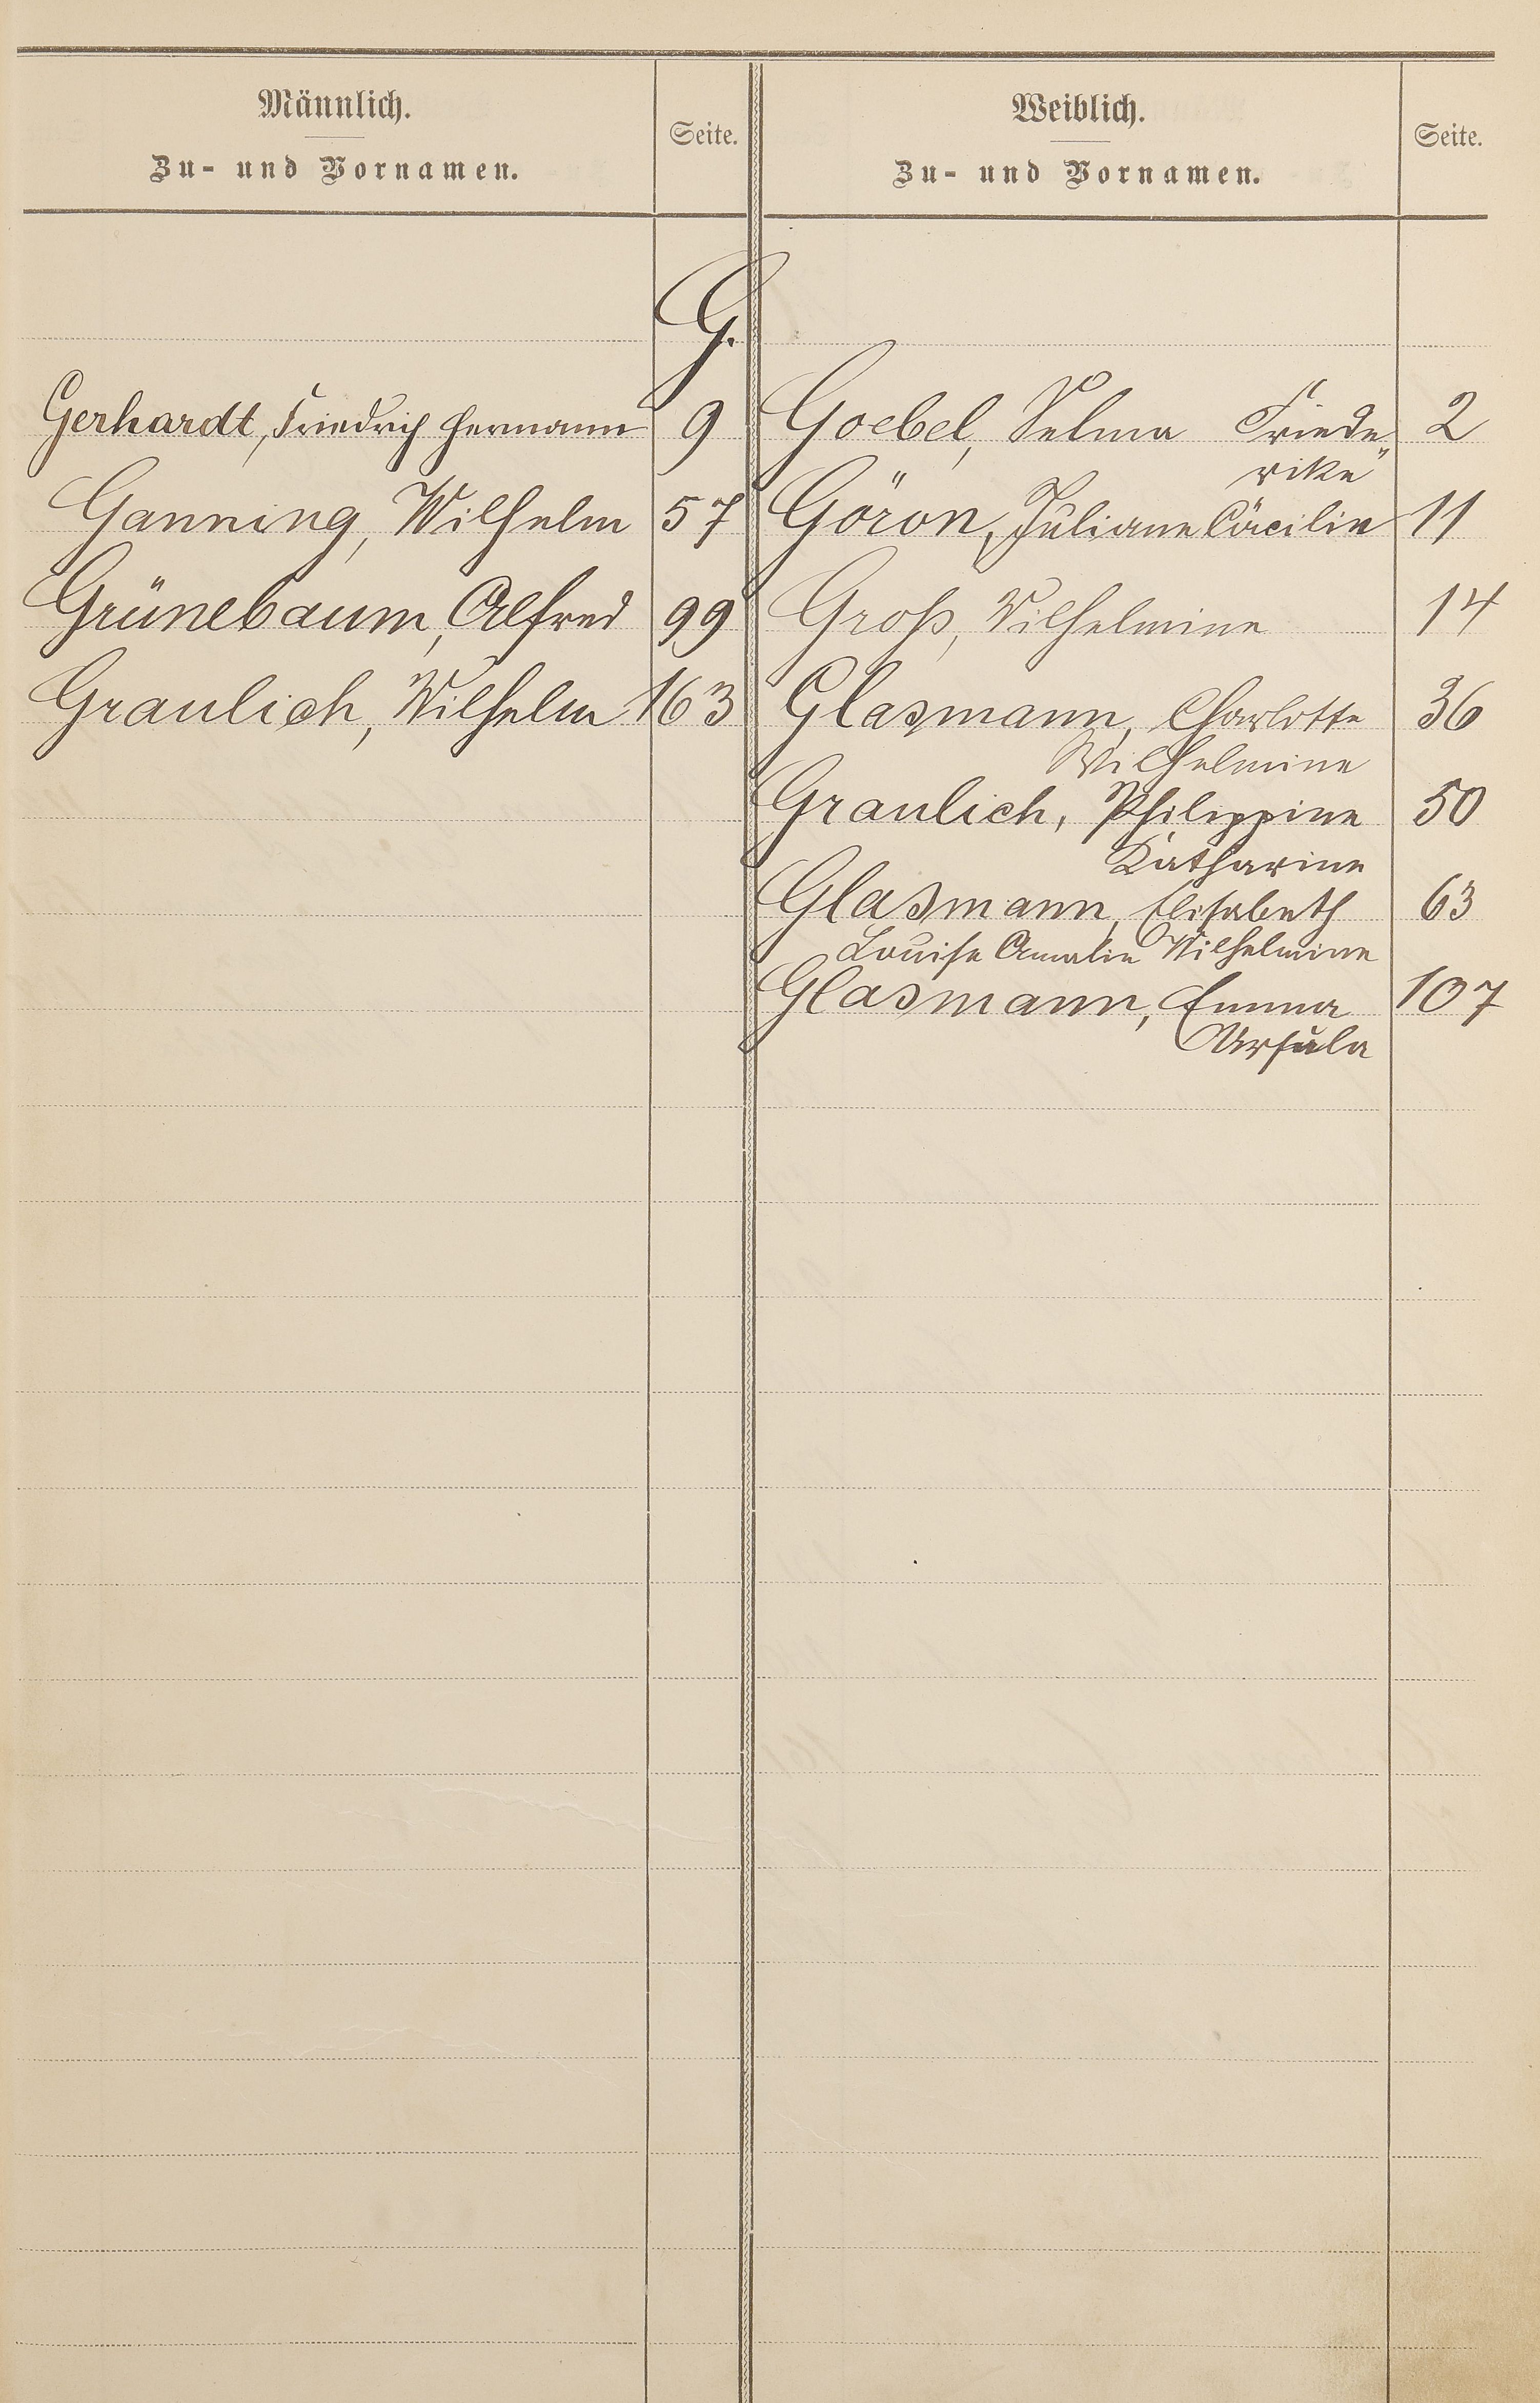 Männlich.
Zu- und Vornamen.
Seite.
Weiblich.
Zu- und Vornamen.
Seite.
G.
Gerhardt, Friedrich Hermann 9
Ganning, Wilhelm 57
Grünebaum, Alfred 99
Graulich, Wilhelm 163
Goebel, Selma Friede- 2
rike
Göron, Juliane Cäcilie 11
Groß, Wilhelmine 14
Glasmann, Charlotte 36
Wilhelmine
Graulich, Philippine 50
Katharine
Glasmann, Elisabeth 63
Louise Amalie Wilhelmine
Glasmann, Emma 107
Ursula